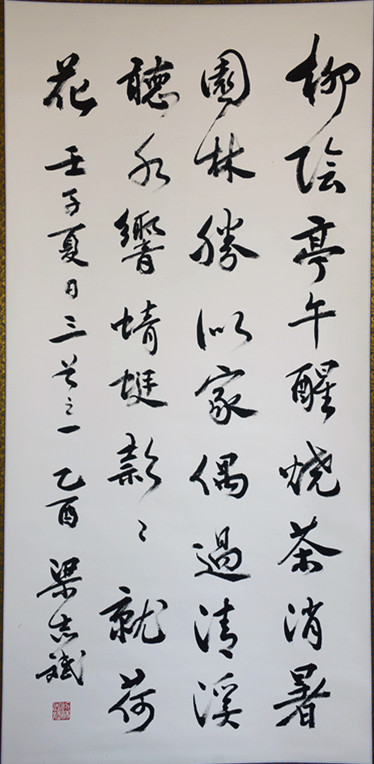 柳陰亭午醒燒茶消暑
園林勝似家偶過清溪
聽水響蜻蜓款〻就荷
花 壬子夏日三首之一 乙酉 梁志斌